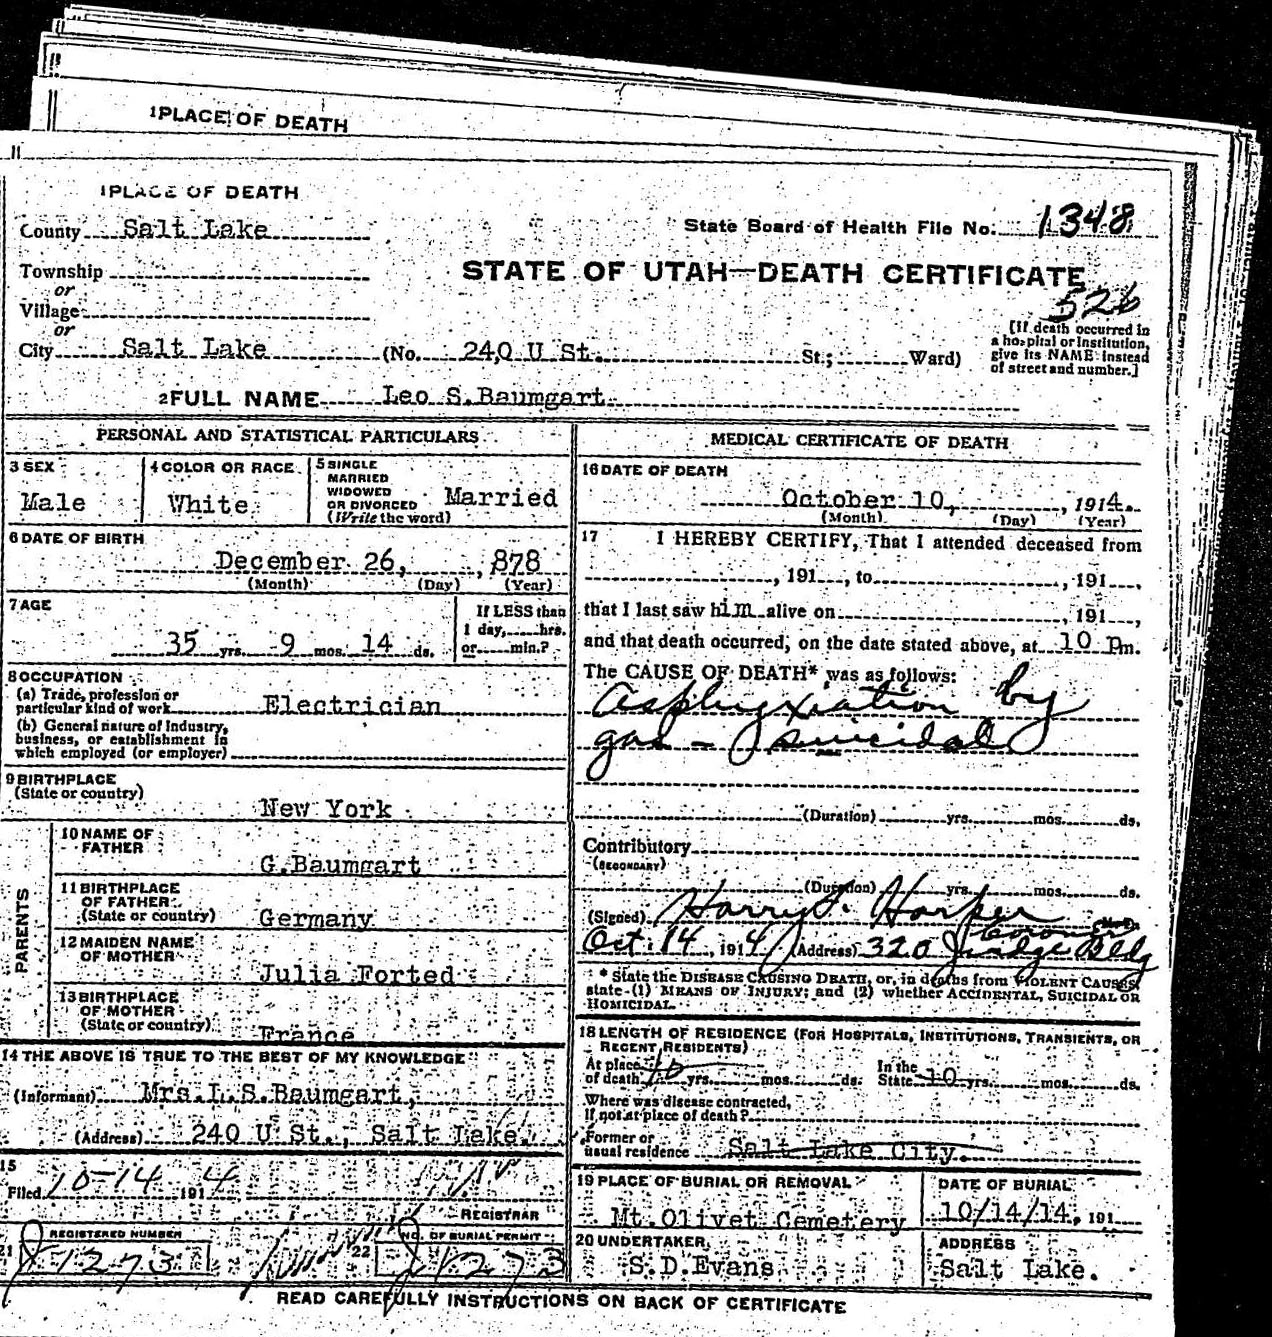 1 PLACE OF DEATH
1 PLACE OF DEATH
County Salt Lake
State Board of Health File No. 1348
Township
or
Village
or
City Salt Lake (No. 240 U St. St.; Ward)
STATE OF UTAH—DEATH CERTIFICATE
526
[If death occurred in
a hospital or institution,
give its NAME instead
of street and number.]
2 FULL NAME Leo S. Baumgart
PERSONAL AND STATISTICAL PARTICULARS
3 SEX
Male
4 COLOR OR RACE
White
5 SINGLE
MARRIED
WIDOWED
OR DIVORCED
(Write the word)
Married
6 DATE OF BIRTH
December 26, , 878
(Month) (Day) (Year)
7 AGE
35 yrs. 9 mos. 14 ds.
If LESS than
1 day, hrs.
or min.?
8 OCCUPATION
(a) Trade, profession or
particular kind of work Electrician
(b) General nature of industry,
business, or establishment in
which employed (or employer)
9 BIRTHPLACE
(State or country)
New York
PARENTS
10 NAME OF
FATHER
G. Baumgart
11 BIRTHPLACE
OF FATHER
(State or country) Germany
12 MAIDEN NAME
OF MOTHER
Julia Forted
13 BIRTHPLACE
OF MOTHER
(State or country) France
14 THE ABOVE IS TRUE TO THE BEST OF MY KNOWLEDGE
(Informant) Mrs. L. S. Baumgart,
(Address) 240 U St., Salt Lake.
15
Filed 10-14 1914
REGISTRAR
21 REGISTERED NUMBER
1273
22 NO. OF BURIAL PERMIT
1273
MEDICAL CERTIFICATE OF DEATH
16 DATE OF DEATH
October 10, , 1914.
(Month) (Day) (Year)
17 I HEREBY CERTIFY, That I attended deceased from
, 191 , to , 191 ,
that I last saw him alive on , 191 ,
and that death occurred, on the date stated above, at 10 Pm.
The CAUSE OF DEATH* was as follows:
Asphyxiation by
gas - suicidal
(Duration) yrs. mos. ds.
Contributory
(SECONDARY)
(Duration) yrs. mos. ds.
(Signed) Harry S. Harper
Coroner
Oct. 14, 1914 (Address) 320 Judge Bldg
* State the DISEASE CAUSING DEATH, or, in deaths from VIOLENT CAUSES,
state (1) MEANS OF INJURY; and (2) whether ACCIDENTAL, SUICIDAL OR
HOMICIDAL.
18 LENGTH OF RESIDENCE (FOR HOSPITALS, INSTITUTIONS, TRANSIENTS, OR
RECENT RESIDENTS)
At place
of death 10 yrs. mos. ds.
In the
State 10 yrs. mos. ds.
Where was disease contracted,
if not at place of death?
Former or
usual residence Salt Lake City.
19 PLACE OF BURIAL OR REMOVAL
Mt. Olivet Cemetery
DATE OF BURIAL
10/14/14, 191
20 UNDERTAKER
S. D. Evans
ADDRESS
Salt Lake.
READ CAREFULLY INSTRUCTIONS ON BACK OF CERTIFICATE